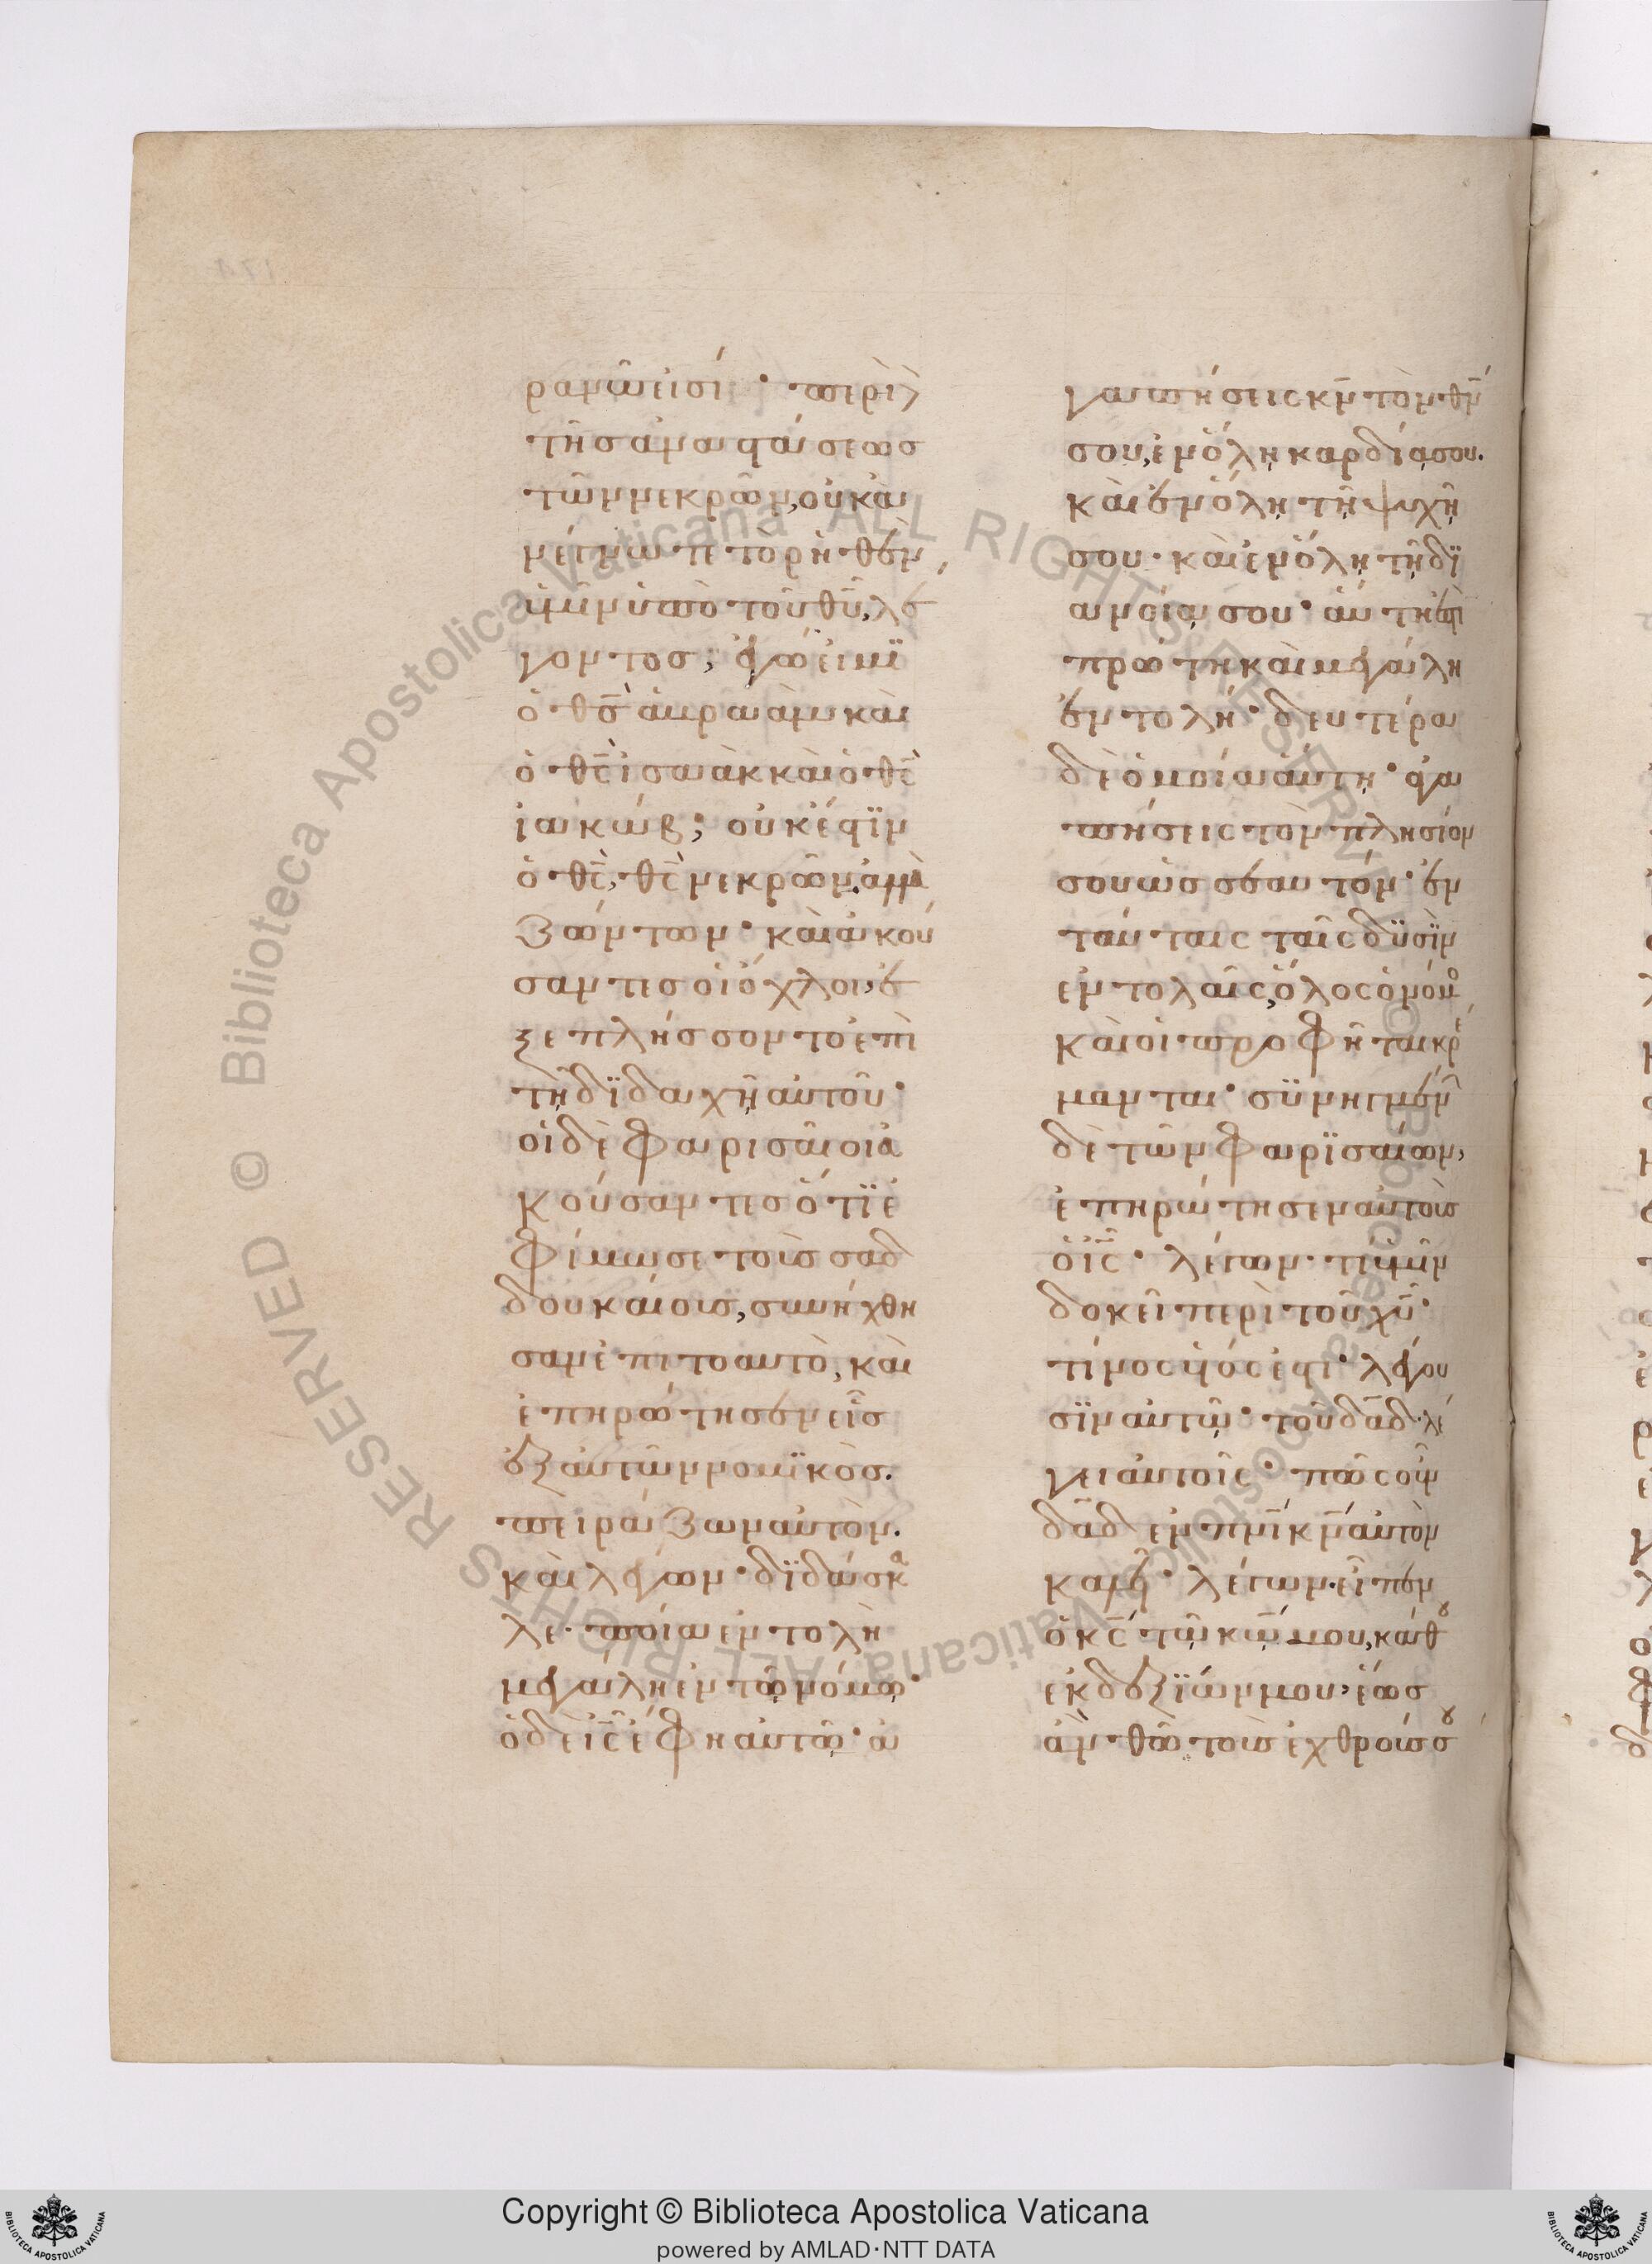 ρανῶ εἰσί· περὶ
τῆς ἀναστάσεως
τῶν νεκρῶν, οὐκ ἀ
νέγνωτε τὸ ῥηθὲν
ὑμῖν ὑπὸ τοῦ θυ̅, λέ
γοντος; ἐγώ εἰμϊ
ὁ θς̅ ἀβραὰμ καὶ
ὁ θς̅ ἰσαὰκ καὶ ὁ θς̅
ἰακώβ; οὐκ ἔστϊν
ὁ θς̅, θς̅ νεκρῶν, ἀλλὰ
ζώντων· καὶ ἀκού
σαντες οἱ ὄχλοι, ἐ
ξεπλήσσοντο ἐπὶ
τῇ δϊδαχῇ αὐτοῦ·
οἱ δὲ φαρισαῖοι ἀ
κούσαντες ὅτϊ ἐ
φίμωσε τοὺς σαδ
δουκαίους, συνήχθη
σαν ἐπὶ τὸ αὐτὸ, καὶ
ἐπηρώτησεν εἷς
ἐξ αὐτῶν νομϊκὸς.
πειράζων αὐτὸν.
καὶ λέγων· δϊδάσκα
λε· ποία ἐντολὴ
μεγάλη ἐν τῷ νόμῳ·
ὁ δὲ ις̅ ἔφη αὐτῷ· ἀ
γαπήσεις κν̅ τὸν θν̅
σου, ἐν ὅλῃ καρδίᾳ σου.
καὶ ἐν ὅλῃ τῇ ψυχῇ
σου· καὶ ἐν ὅλῃ τῇ δϊ
ανοίᾳ σου· αὕτη ἐστὶ
πρώτη καὶ μεγάλη
ἐντολή· δευτέρα
δὲ ὁμοία αὐτῇ· ἀγα
πήσεις τὸν πλησίον
σου ὡς σεαυτόν· ἐν
ταύταις ταῖς δυσὶν
ἐντολαῖς, ὅλος ὁ νόμο
καὶ οἱ προφῆται κρέ
μανται· συνηγμένῶ
δὲ τῶν φαρϊσαίων,
ἐπηρώτησεν αὐτοὺς
ὁ ις̅· λέγων· τί ὑμῖν
δοκεῖ περὶ τοῦ χυ̅·
τίνος ὑός ἐστι· λέγου
σϊν αὐτῷ· τοῦ δαδ̅· λέ
γει αὐτοῖς· πῶς οὖν
δαδ̅ ἐν πνι̅ κν̅ αὐτὸν
καλεῖ· λέγων· εἶπεν
ὁ κς̅ τῷ κω̅ μου, κάθου
ἐκ δεξϊῶν μου, ἕως
ἂν θῶ τοὺς ἐχθρούς σου